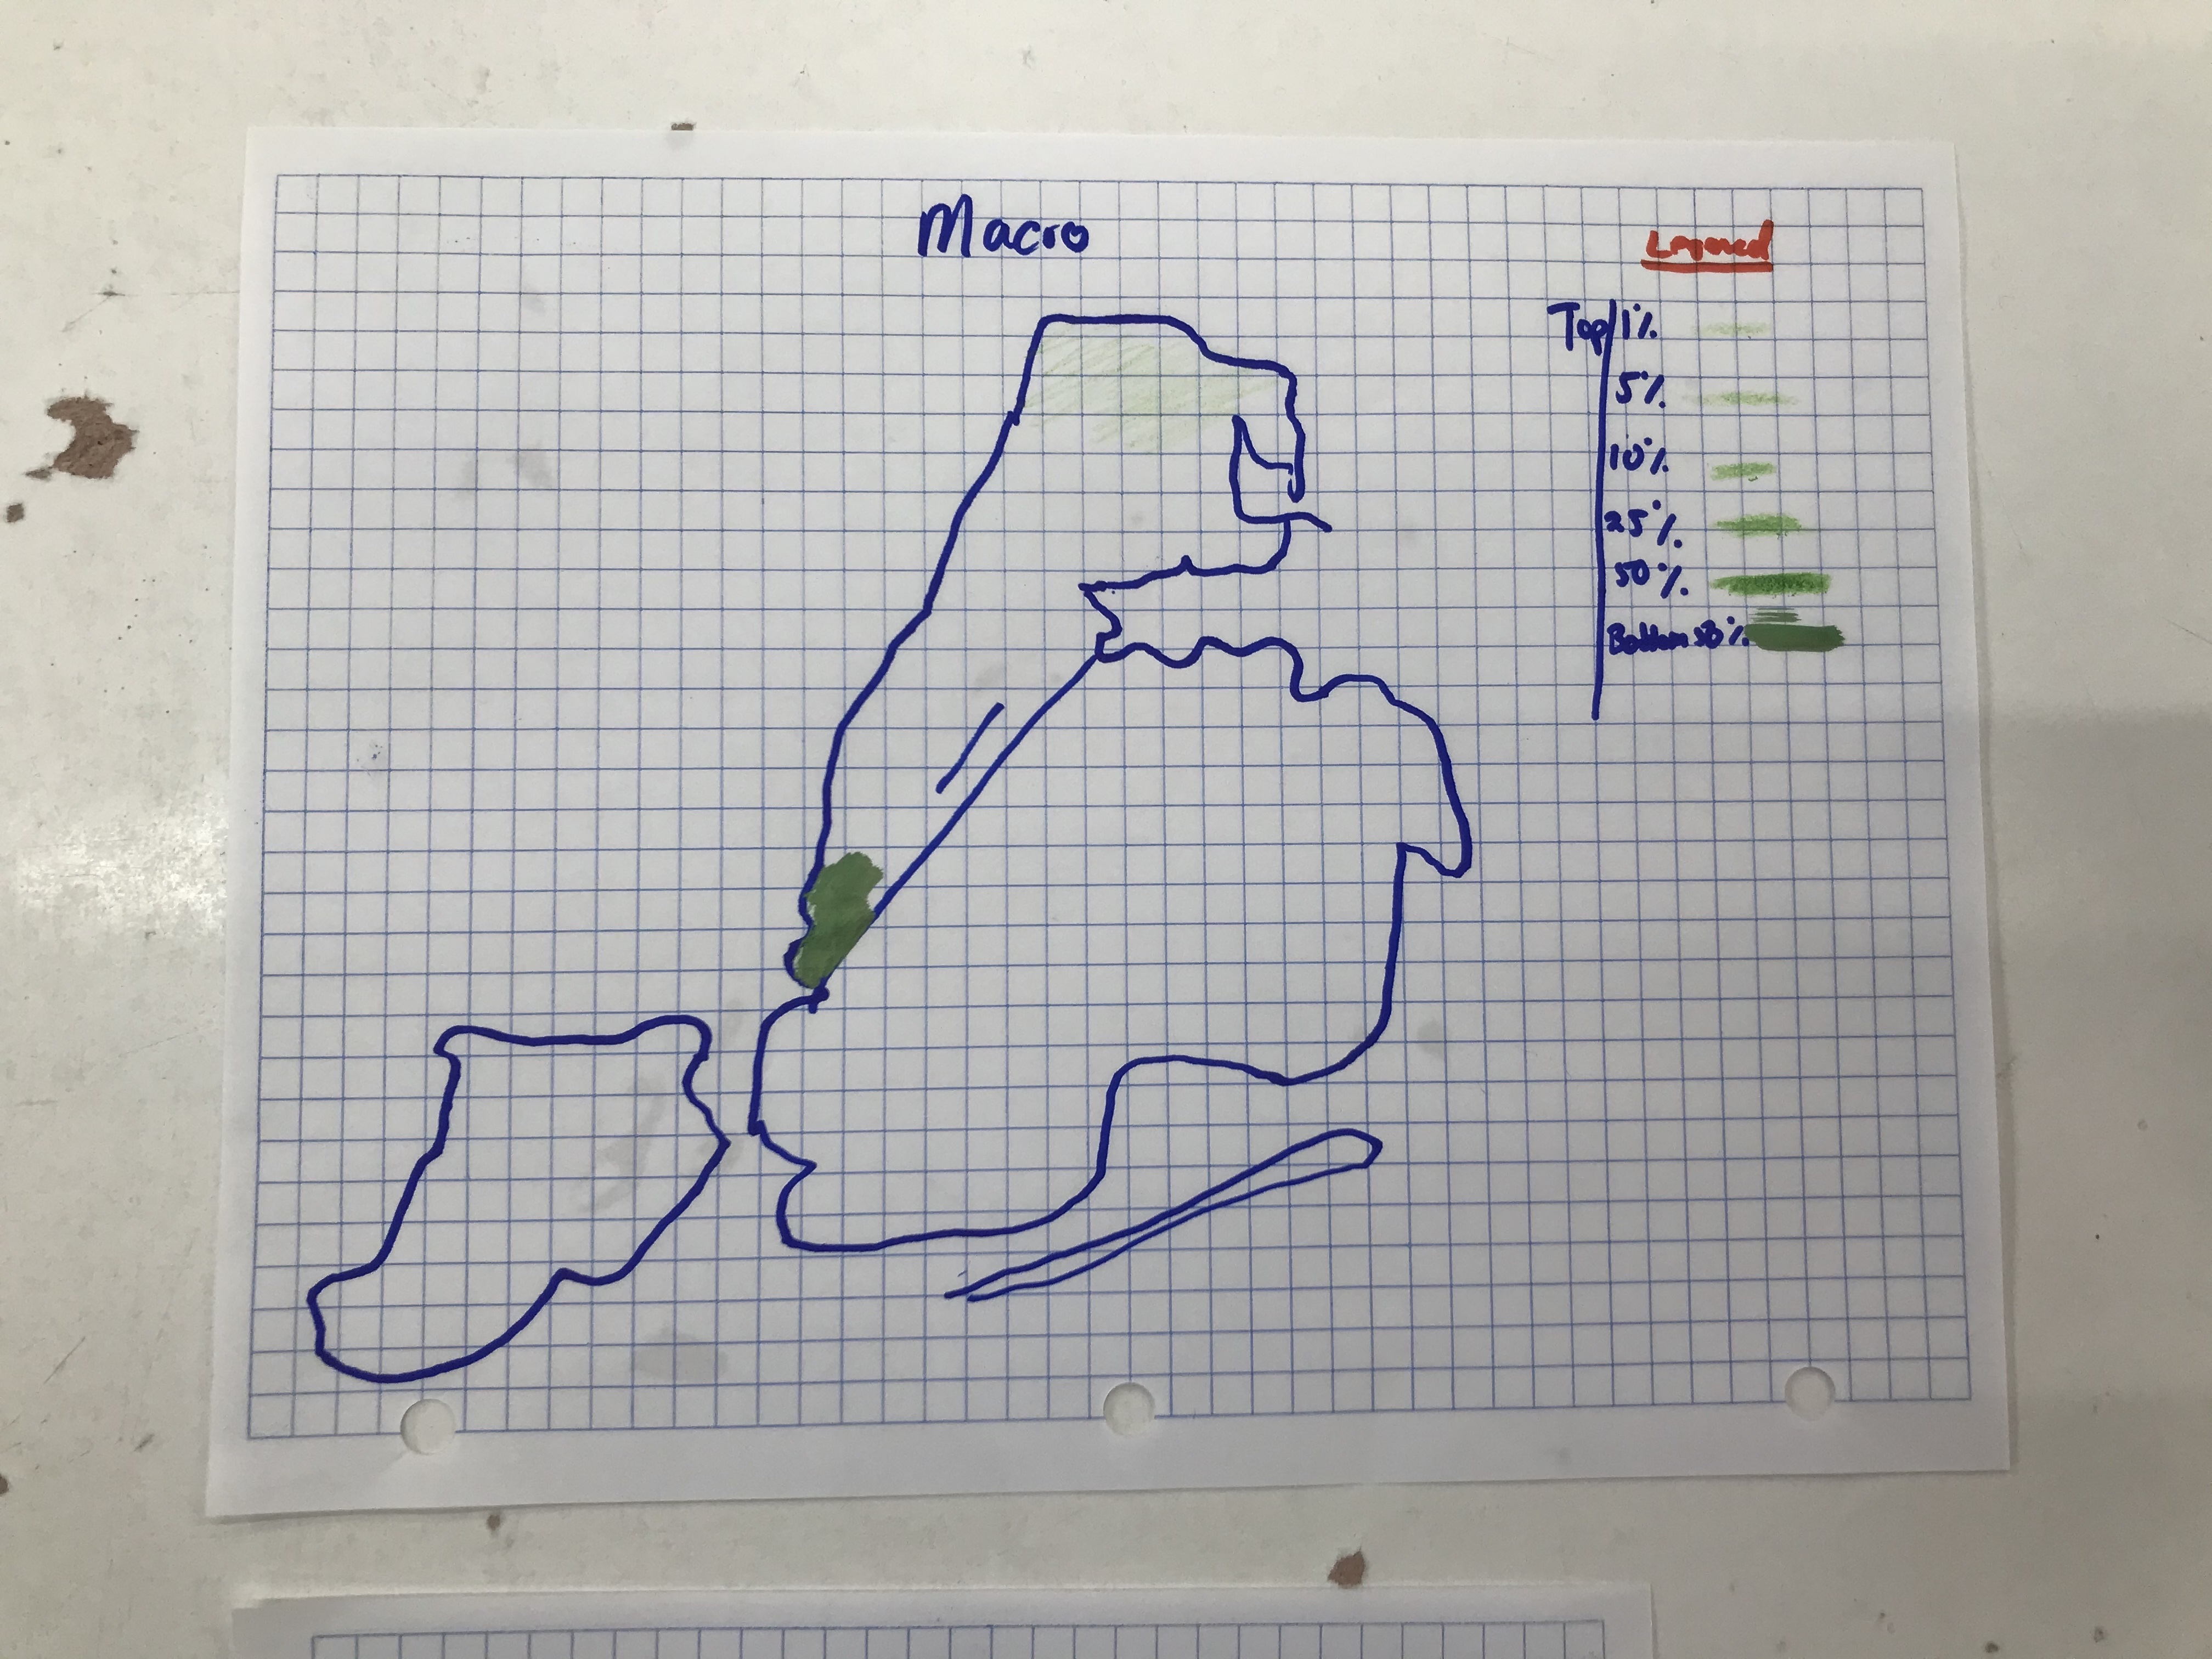 Macro
Legend
Top 1%
5%
10%
25%
50%
Bottom 50%